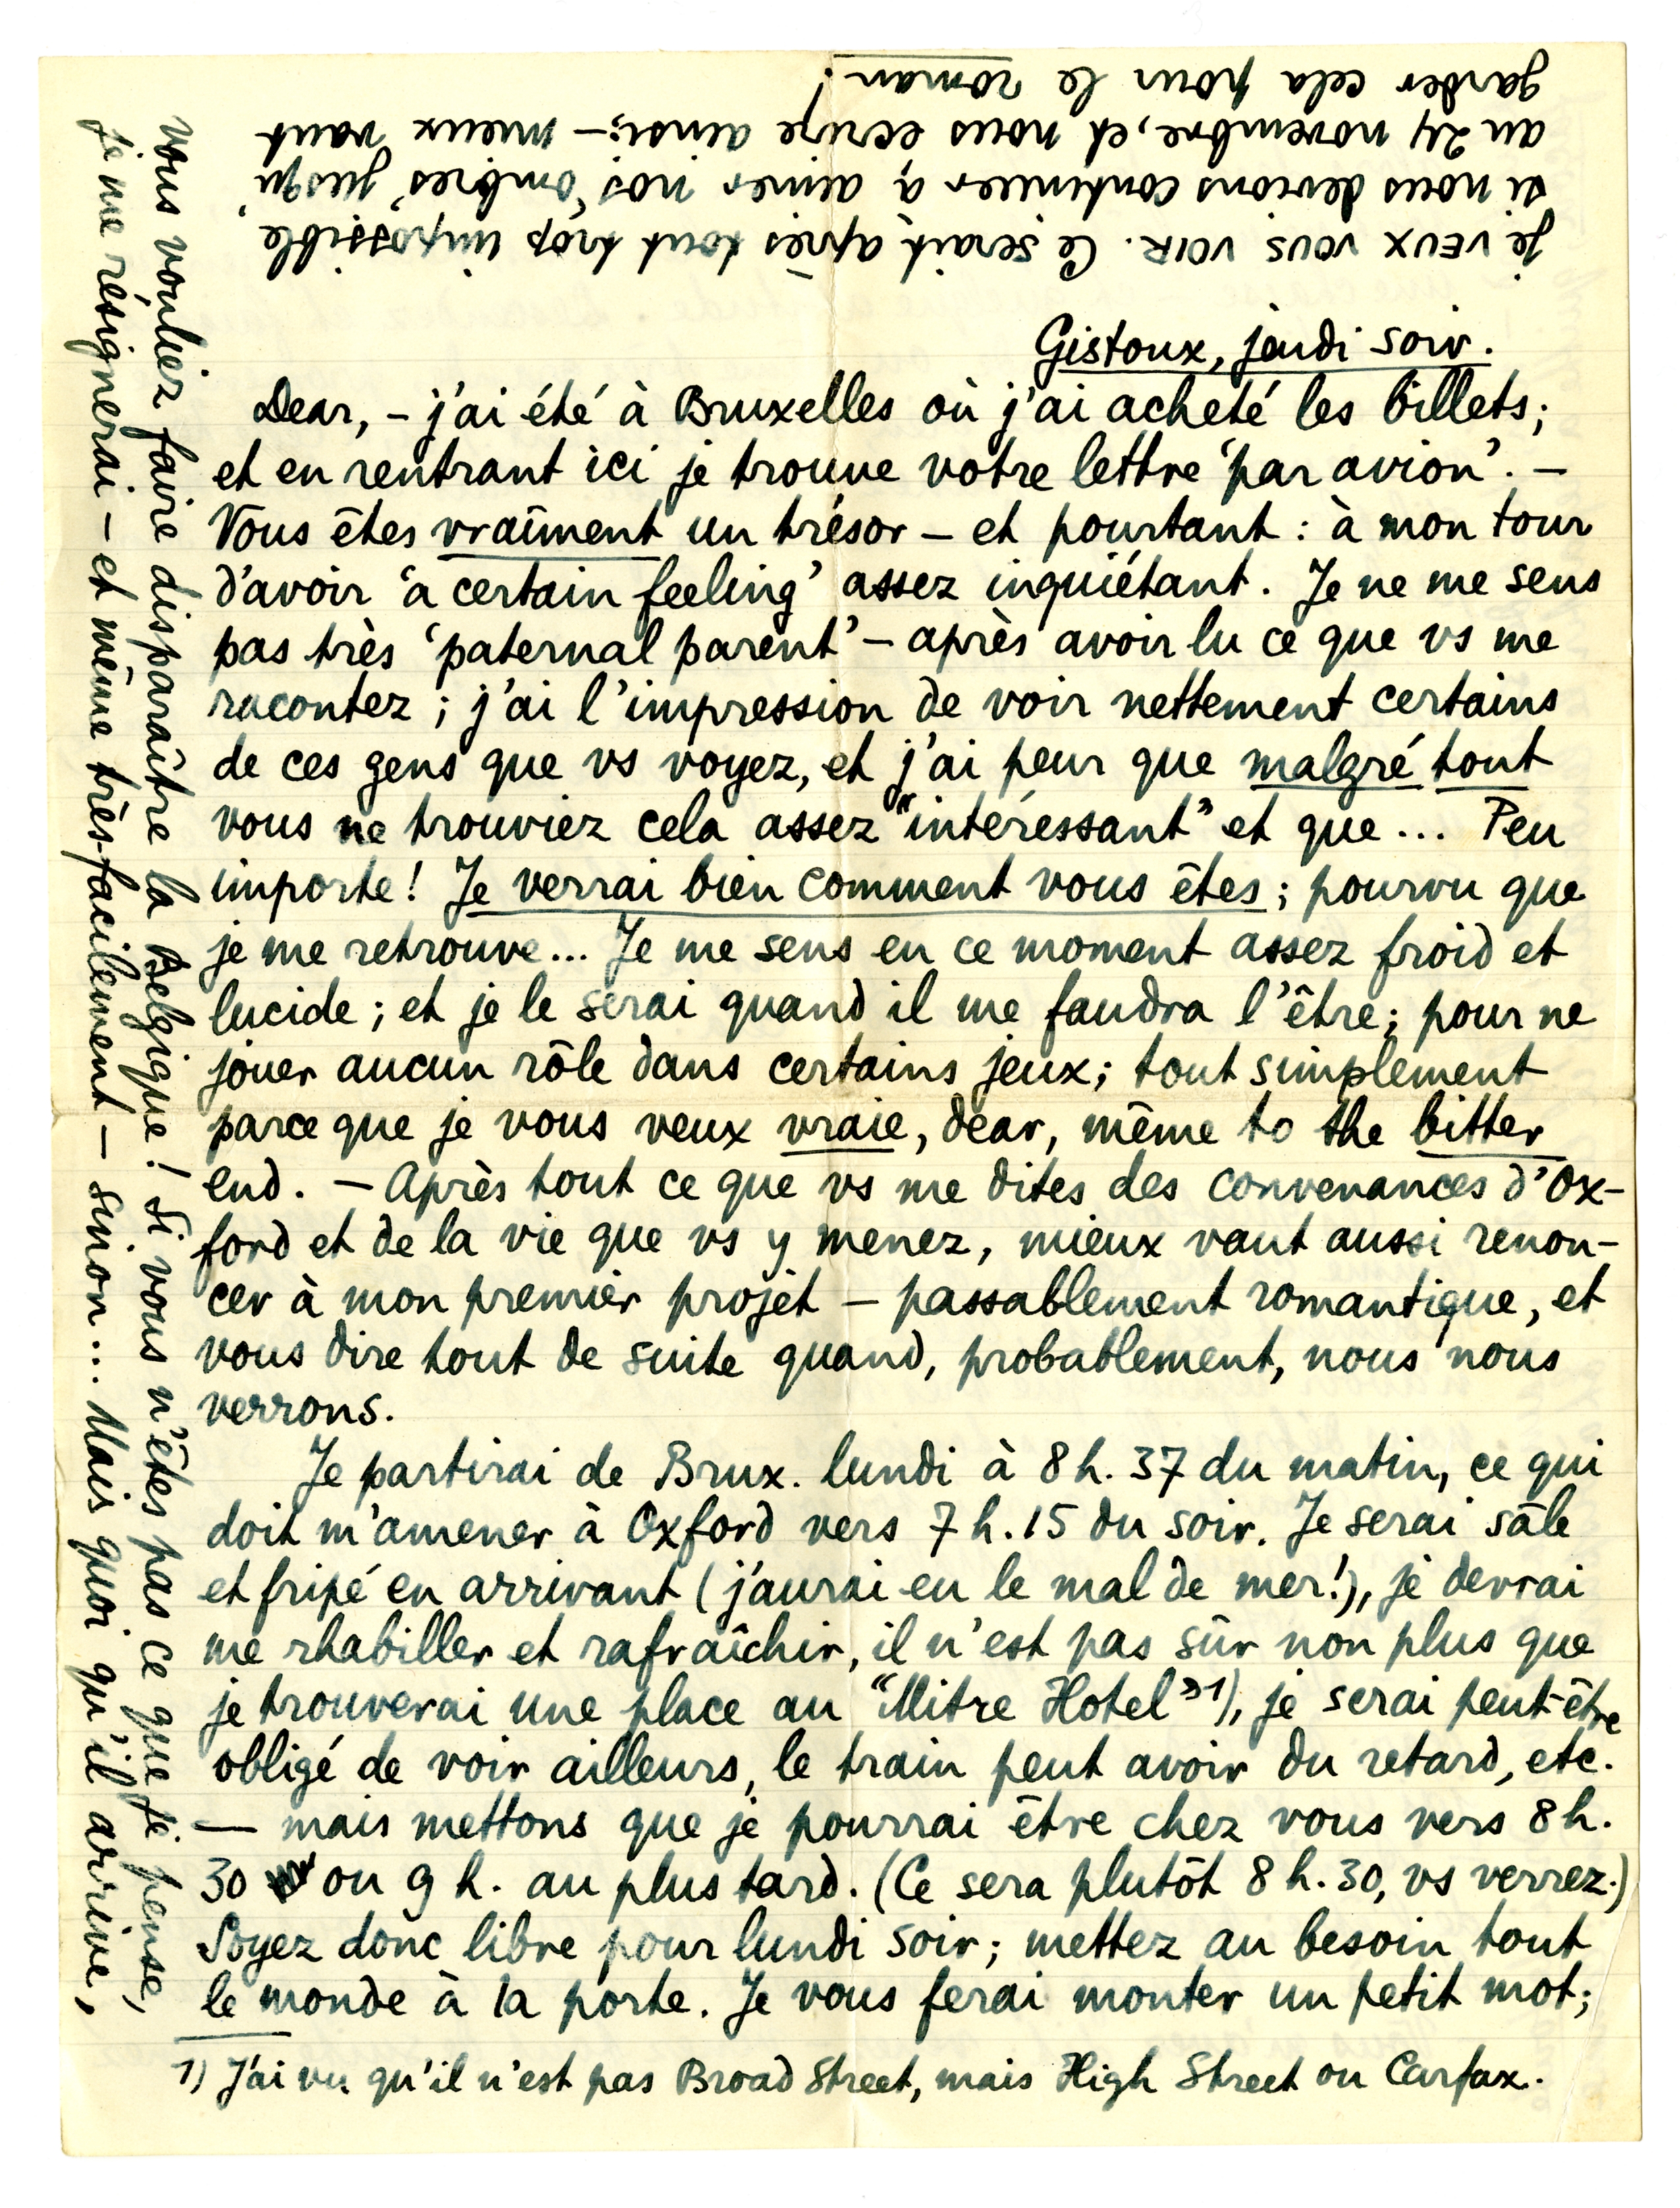 Gistoux, jeudi soir.
Dear, – j'ai été à Bruxelles où j'ai acheté les billets;
et en rentrant ici je trouve votre lettre 'par avion'. –
Vous êtes vraîment un trésor – et pourtant : à mon tour
d'avoir 'a certain feeling' assez inquiétant. Je ne me sens
pas très 'paternal parent' – après avoir lu ce que vs me
racontez ; j'ai l'impression de voir nettement certains
de ces gens que vs voyez, et j'ai peur que malgré tout
vous ne trouviez cela assez "intéressant" et que ... Peu
importe! Je verrai bien comment vous êtes; pourvu que
je me retrouve... Je me sens en ce moment assez froid et
lucide ; et je le serai quand il me faudra l'être; pour ne
jouer aucun rôle dans certains jeux; tout simplement
parce que je vous veux vraie, dear, même to the bitter
end. – Après tout ce que vs me dites des convenances d'Ox-
ford et de la vie que vs y menez, mieux vaut aussi renon-
cer à mon premier projet – passablement romantique, et
vous dire tout de suite quand, probablement, nous nous
verrons.
Je partirai de Brux. lundi à 8 h. 37 du matin, ce qui
doit m'amener à Oxford vers 7 h. 15 du soir. Je serai sâle
et fripé en arrivant (j'aurai eu le mal de mer!), je devrai
me rhabiller et rafraîchir, il n'est pas sûr non plus que
je trouverai une place au "Mitre Hotel" 1), je serai peut-être
obligé de voir ailleurs, le train peut avoir du retard, etc.
— mais mettons que je pourrai être chez vous vers 8 h.
30 ou 9 h. au plus tard. (Ce sera plutôt 8 h. 30, vs verrez.)
Soyez donc libre pour lundi soir; mettez au besoin tout
le monde à la porte. Je vous ferai monter un petit mot;
1) J'ai vu qu'il n'est pas Broad Street, mais High Street ou Carfax.
vous vouliez faire disparaître la Belgique! Si vous n'êtes pas ce que je pense,
je me résignerai – et même très facilement – sinon... Mais quoi qu'il arrive,
je VEUX VOUS VOIR. Ce serait après tout trop impossible,
si nous devions continuer à aimer nos 'ombres' jusqu'
au 24 novembre, et nous écrire ainsi; – mieux vaut
garder cela pour le roman!